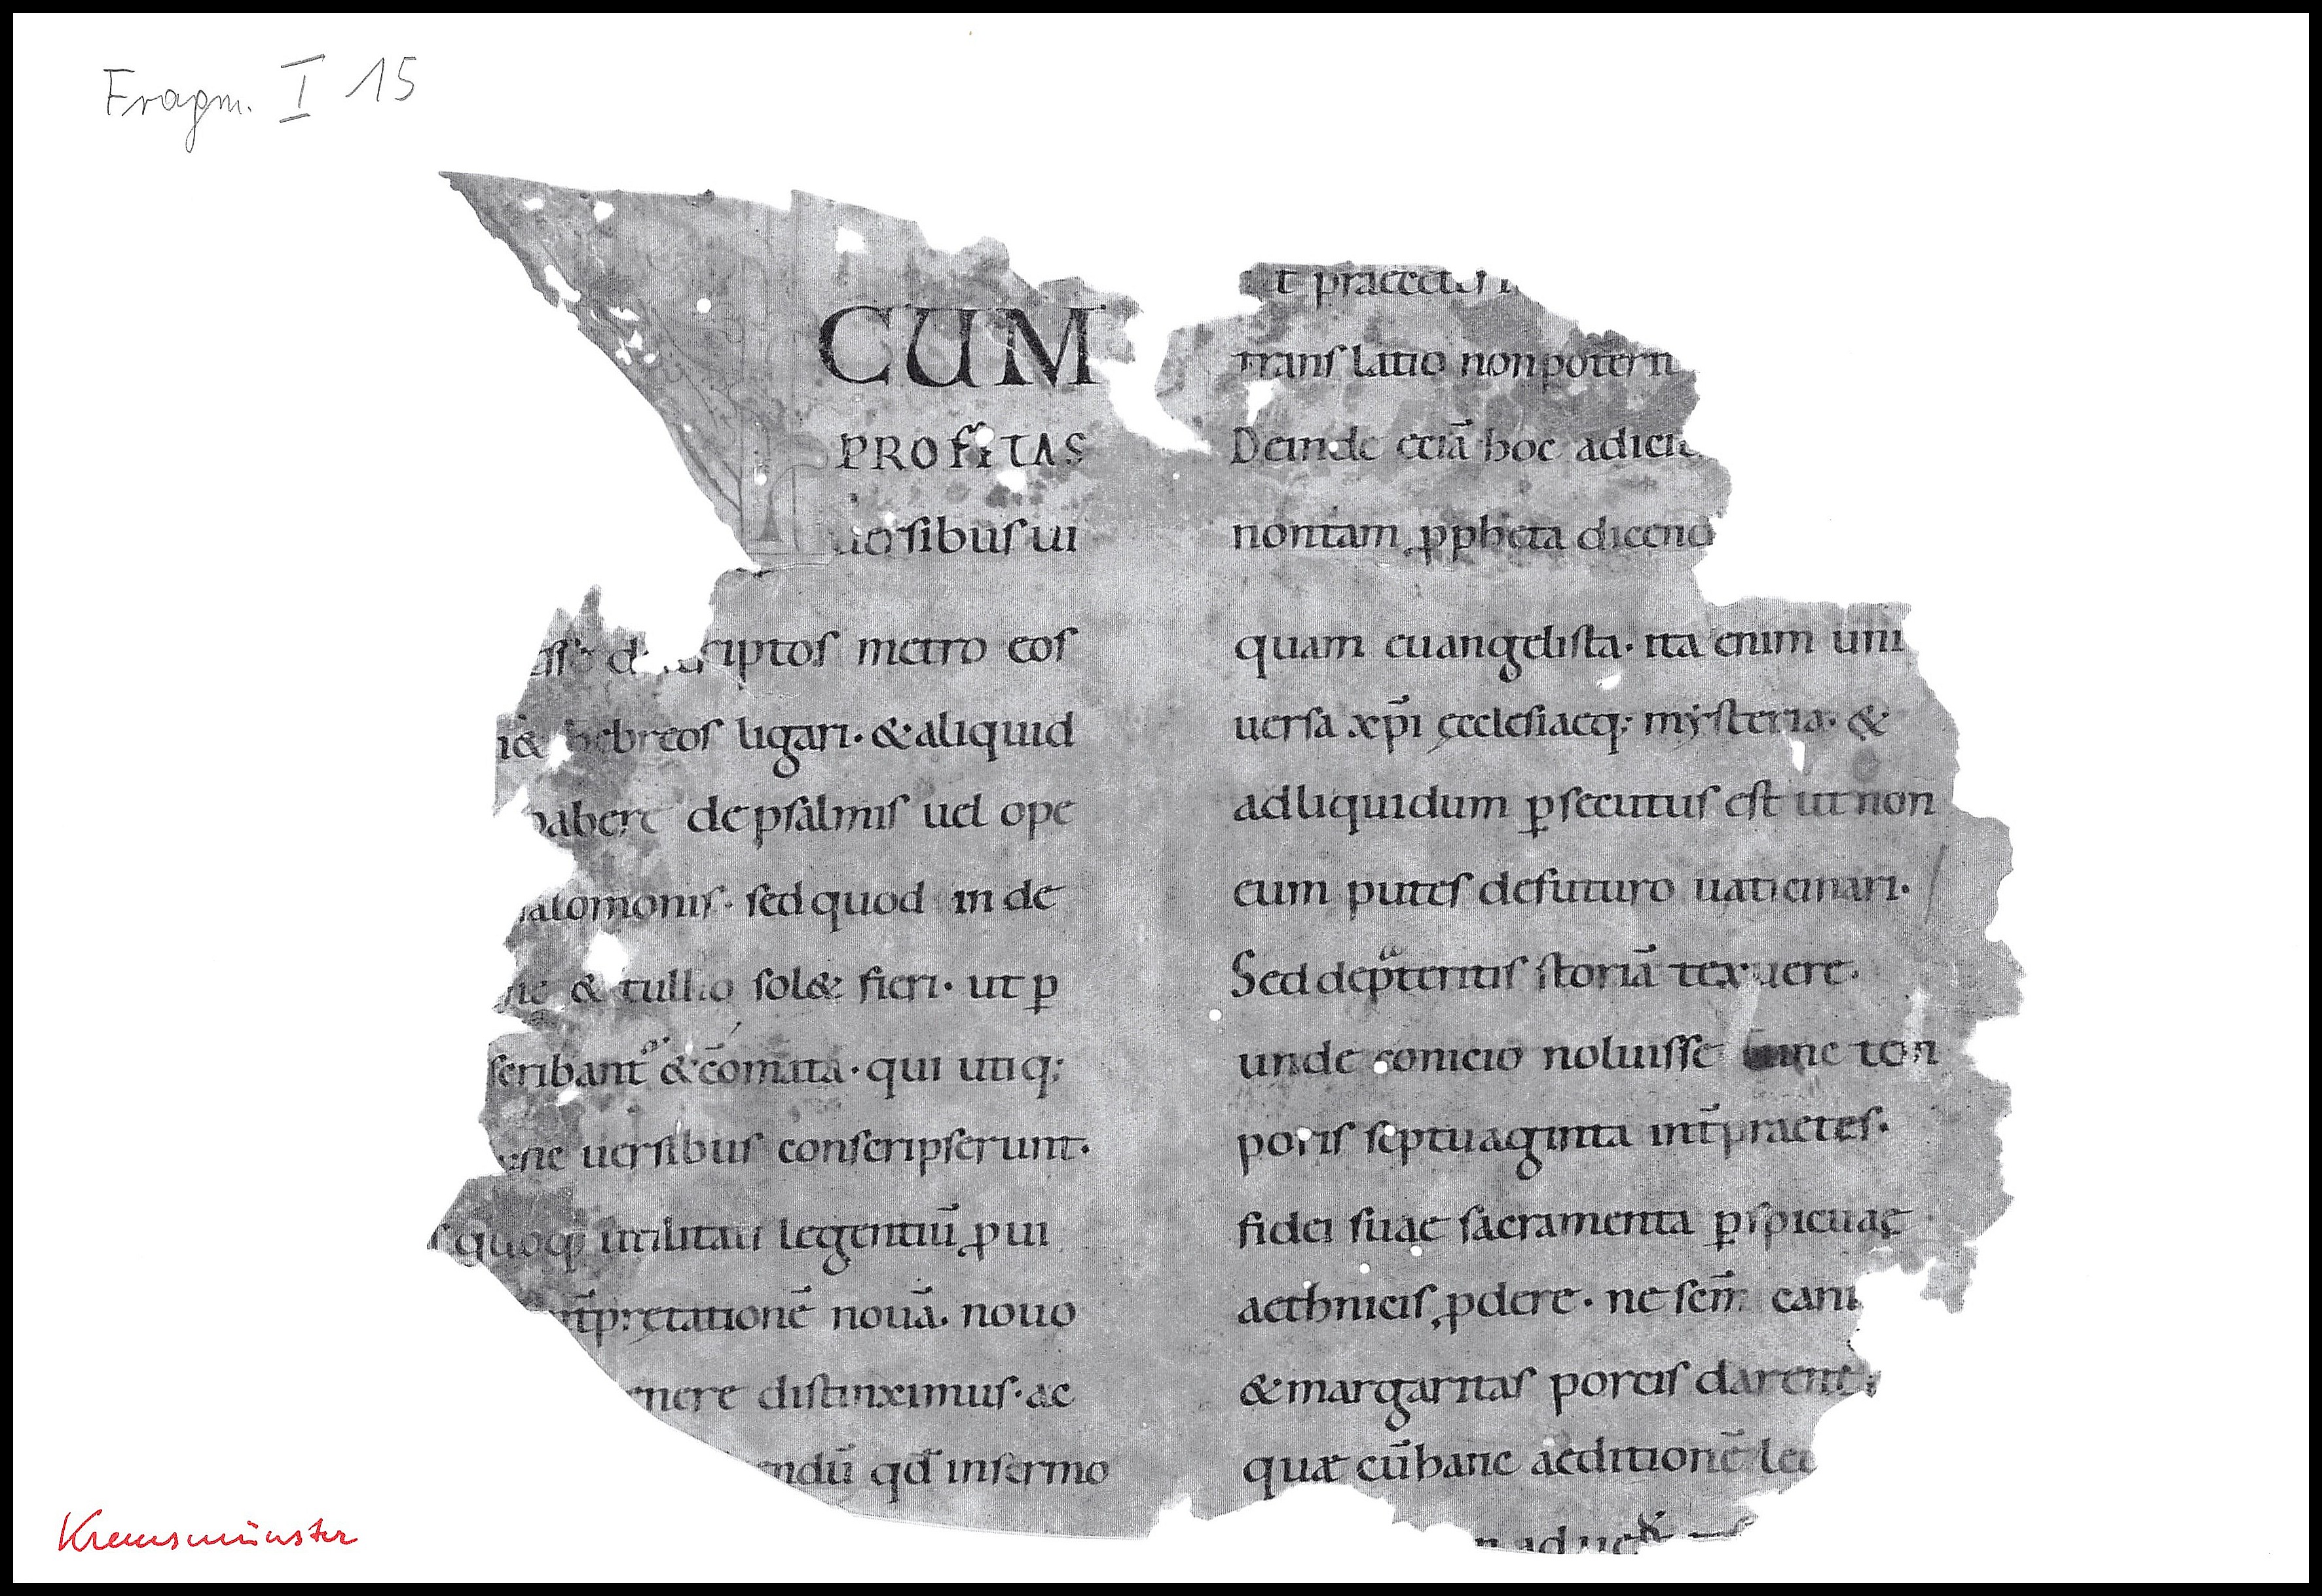 Fragm. I 15
CUM
PROFETAS
uersibus ui
metro eos
hebreos ligari. & aliquid
habere de psalmis uel ope
salomonis. sed quod in de
& tullio sol& fieri. ut ꝑ
scribant̃ & cõmata. qui utiq;
uersibus conscripserunt.
quoq; utilitati legentiũ ꝓui
int̃prętationẽ nouã. nouo
distinximus. ac
qđ in sermo
translatio non poterit
Deinde etiã hoc
non tam ꝓpheta
quam euangelista. ita enim uni
uersa xp̃i ęcclesiaeq; mysteria. &
ad liquidum ꝑsecutus est ut non
eum putes de futuro uaticinari.
Sed de p̃teritis storiã texuere.
unde conicio noluisse tunc tem
poris septuaginta int̃praetes.
fidei suae sacramenta ꝑspicuae
aethnicis ꝓdere. ne scm̃ cani
& margaritas porcis darent.
quae cũ hanc aeditionẽ
Kremsmünster